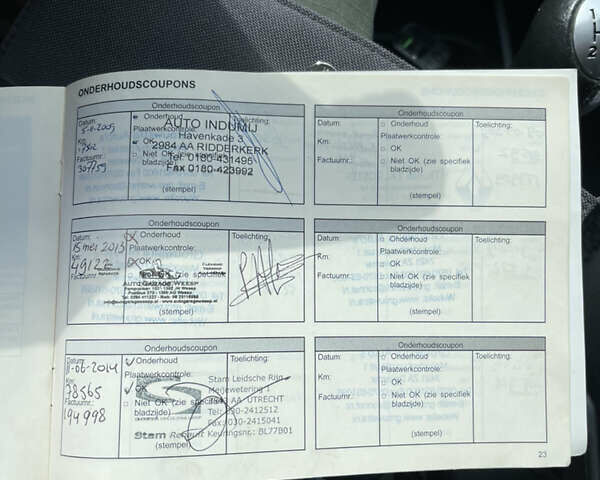 ONDERHOUDSCOUPONS
Onderhoudscoupon
Datum:
Onderhoud
Toelichting:
Plaatwerkcontrole:
AUTO INDUMIJ
Havenkade 3
Km:
OK
2984 AA RIDDERKERK
Niet OK (zie specifiek bladzijde)
Tel 0180-431496
Factuurnr.:
Fax 0180-423992
(stempel)
Onderhoudscoupon
Datum:
Onderhoud
Toelichting:
Plaatwerkcontrole:
Km:
OK
Factuurnr.:
Niet OK (zie specifiek bladzijde)
(stempel)
Onderhoudscoupon
Datum:
Onderhoud
Toelichting:
15 mei 2013
Plaatwerkcontrole:
Km:
OK
Factuurnr.:
(zie specifiek
AUTO GARAGE WEESP
(stempel)
Onderhoudscoupon
Datum:
Onderhoud
Toelichting:
Plaatwerkcontrole:
Km:
OK
Factuurnr.:
Niet OK (zie specifiek bladzijde)
(stempel)
Onderhoudscoupon
Datum:
Onderhoud
Toelichting:
Plaatwerkcontrole:
Km:
OK
78565
Niet OK (zie specifiek bladzijde)
Factuurnr.:
194998
Stam Leidsche Rijn
Meijewetering 1
AA UTRECHT
Tel: 030-2412512
Fax: 030-2415041
Keuringsnr.: BL77B01
Stam
(stempel)
Onderhoudscoupon
Datum:
Onderhoud
Toelichting:
Plaatwerkcontrole:
Km:
OK
Factuurnr.:
Niet OK (zie specifiek bladzijde)
(stempel)
23
1
2